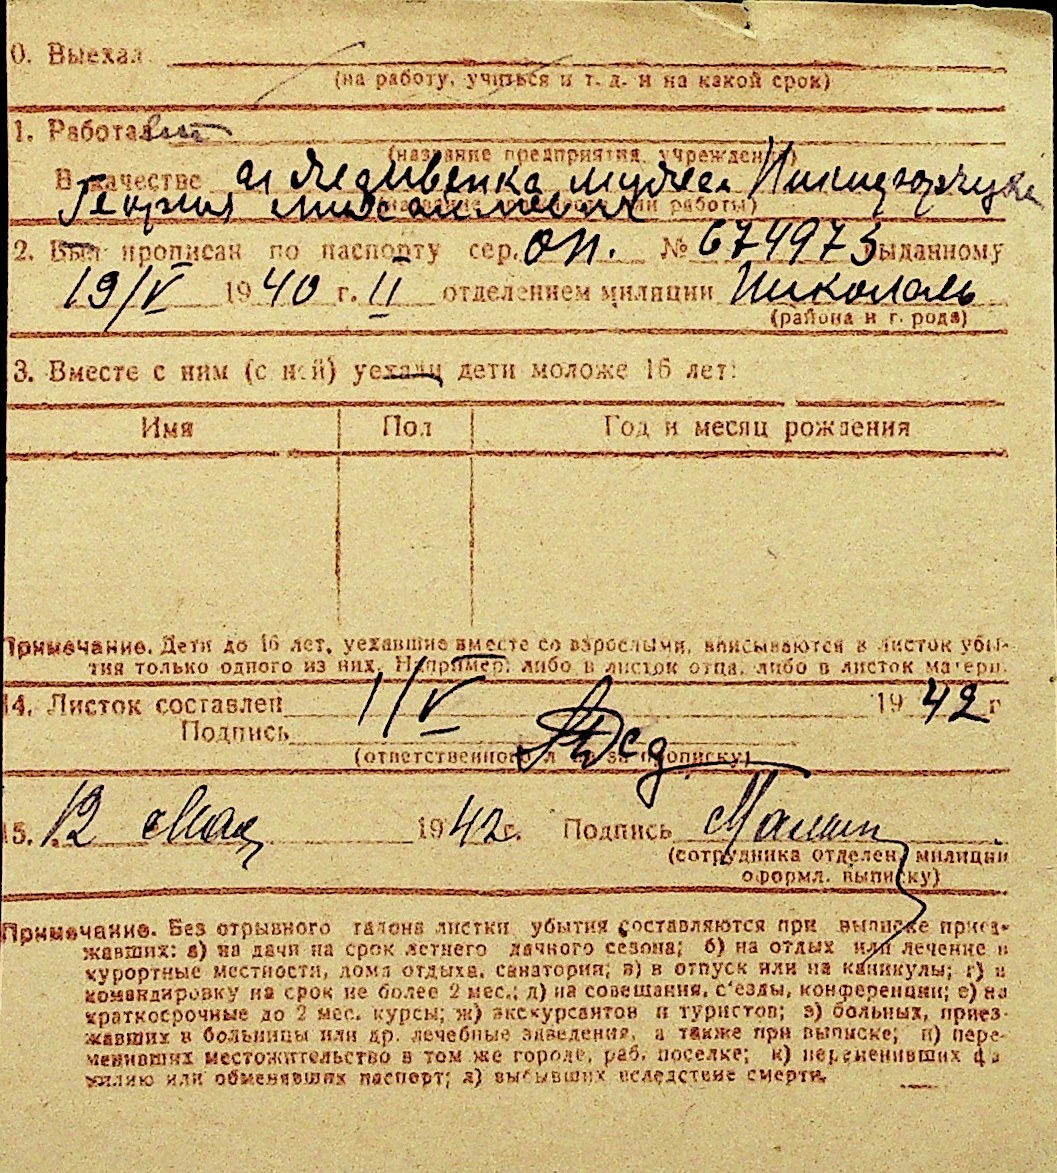 0. Выехал
(на работу, учиться и т. д. и на какой срок)
1. Работал
(название предприятия, учреждения)
В качестве иждивенка мужа
Георгия
2. Был прописан по паспорту сер. ОП. № 674973 выданному
19/V 1940 г. II отделением милиции Николаь
(района и города)
3. Вместе с ним (с ней) уехали дети моложе 16 лет:
Имя Пол Год и месяц рождения
Примечание. Дети до 16 лет, уехавшие вместе со взрослыми, вписываются в листок убы-
тия только одного из них. Например: либо в листок отца, либо в листок матери.
14. Листок составлен 1/V 1942 г
Подпись
(ответственного л за прописку)
15. 12 мая 1942 г. Подпись
(сотрудника отделен. милиции
оформл. выписку)
Примечание. Без отрывного талона листки убытия составляются при выписке приез-
жавших: а) на дачи на срок летнего дачного сезона; б) на отдых или лечение в
курортные местности, дома отдыха, санатории; в) в отпуск или на каникулы; г) в
командировку на срок не более 2 мес.; д) на совещания, с'езды, конференции; е) на
краткосрочные до 2 мес. курсы; ж) экскурсантов и туристов; з) больных, приез-
жавших в больницы или др. лечебные заведения, а также при выписке; и) пере-
менивших местожительство в том же городе, раб. поселке; к) переменивших фа
милию или обменявших паспорт; л) выбывших вследствие смерти.